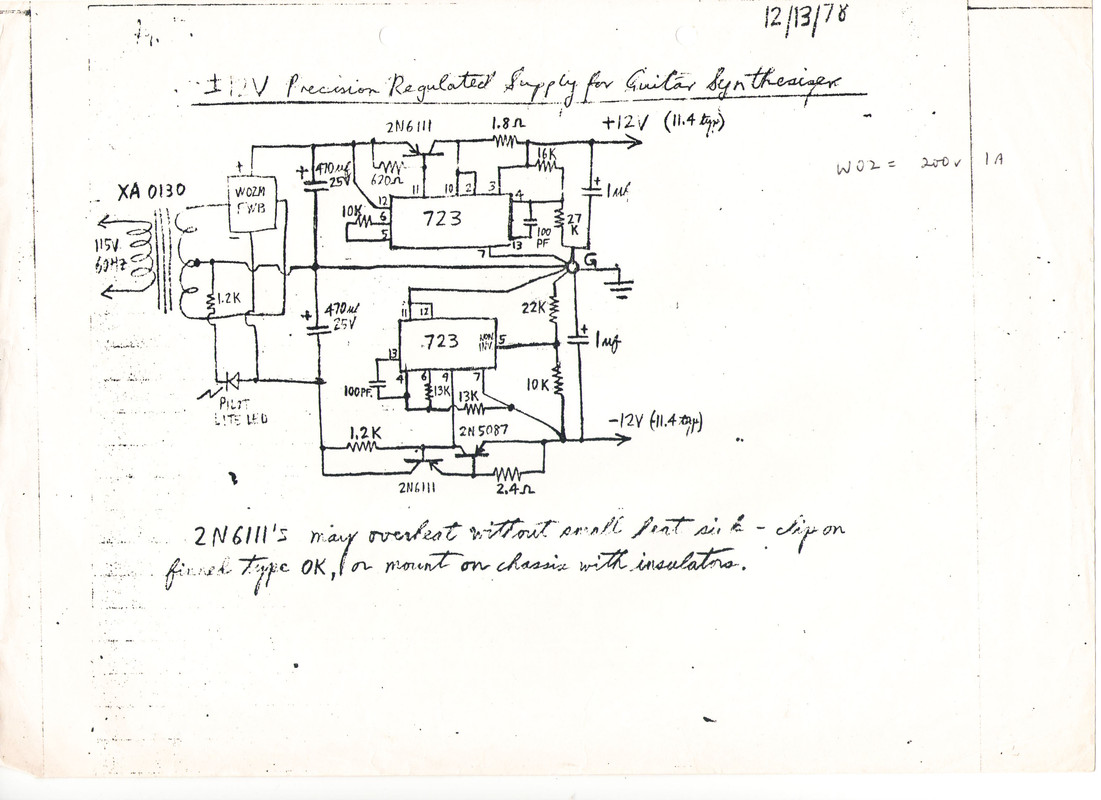 12/13/78
±12V Precision Regulated Supply for Guitar Synthesiser
2N6111
1.8Ω
+12V (11.4 typ)
W02 = 200v 1A
XA 0130
+
W02M
FWB
-
+
470uf
25V
620Ω
16K
+
1uf
11
10
2
3
4
12
6
5
10K
723
100
PF
27
K
13
7
115V
60HZ
G
1.2K
+
470uf
25V
22K
11
12
723
NON
INV
5
+
1uf
13
4
6
9
7
100PF.
13K
13K
10K
PILOT
LITE LED
1.2K
2N5087
-12V (-11.4 typ)
2N6111
2.4Ω
2N6111's may overheat without small heat sink - clip on
finned type OK, or mount on chassis with insulators.